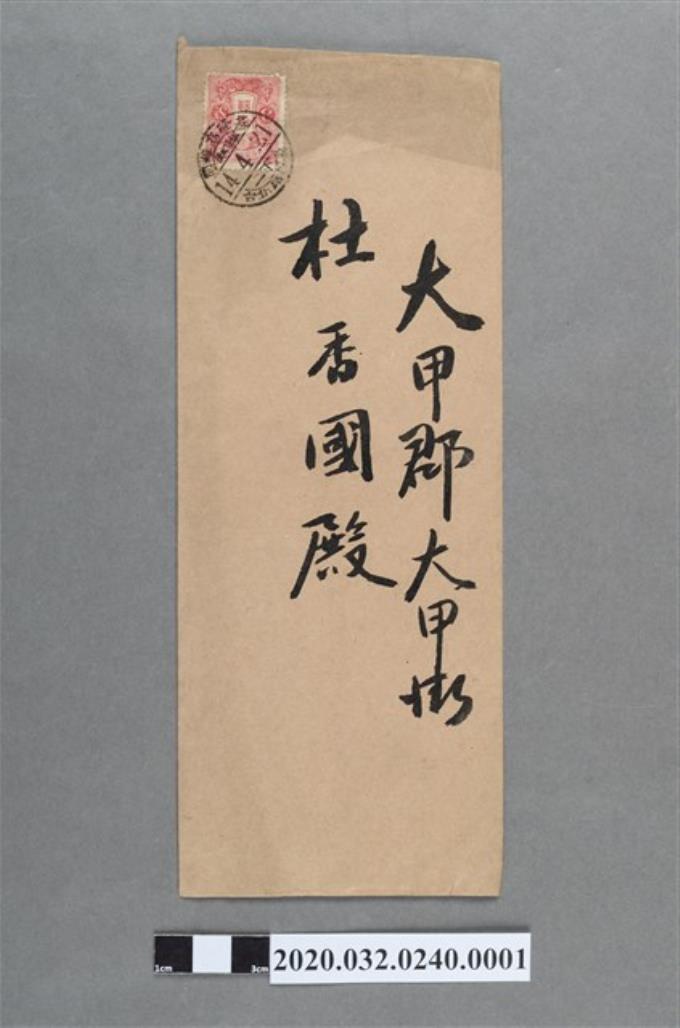 大甲郡大甲街
杜香國殿
14.4.21
1cm
3cm
2020.032.0240.0001